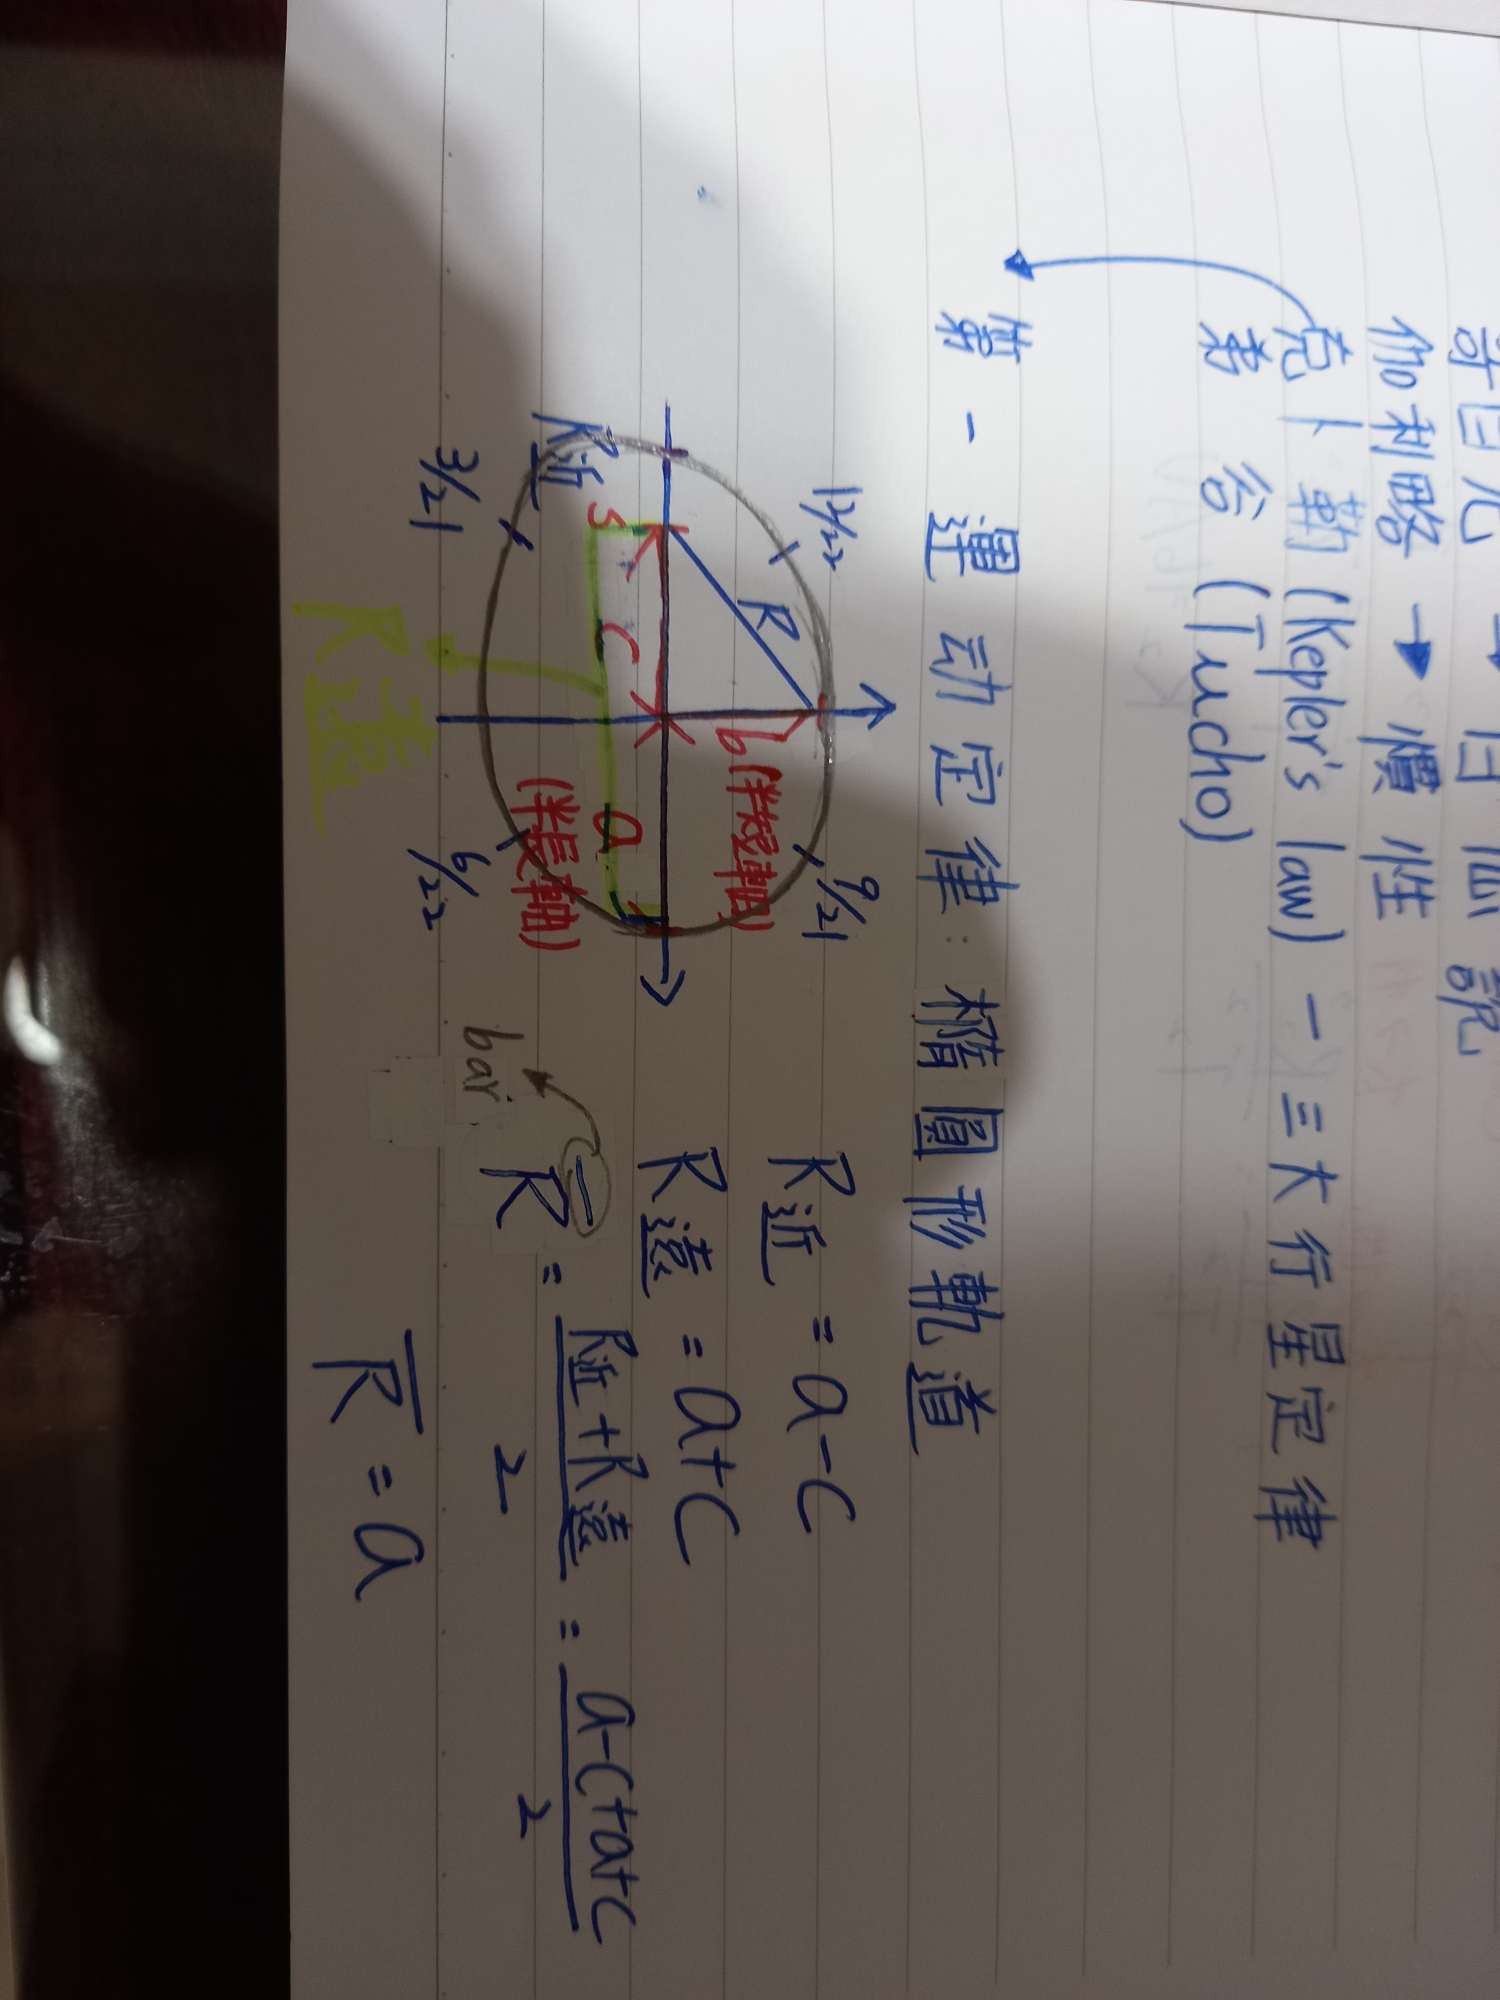 哥白尼 → 日心說
伽利略 → 慣性
克卜勒 (Kepler's law) - 三大行星定律
第谷 (Tycho)
第一運动定律: 橢圓形軌道
12/22
9/21
R
b (半短軸)
S
C
a
(半長軸)
R近
3/21
6/22
R遠
R近 = a-c
R遠 = a+c
R̄ = R近+R遠 / 2 = a-c+a+c / 2
bar
R̄ = a